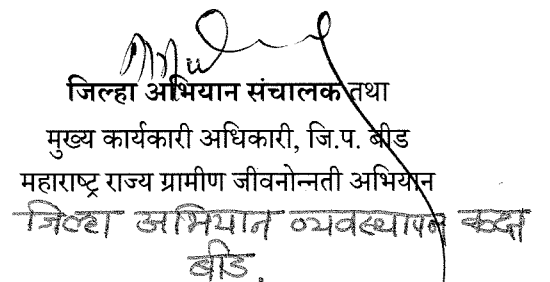 जिल्हा अभियान संचालक तथा
मुख्य कार्यकारी अधिकारी, जि.प. बीड
महाराष्ट्र राज्य ग्रामीण जीवनोन्नती अभियान
जिल्हा अभियान व्यवस्थापन कक्ष
बीड.